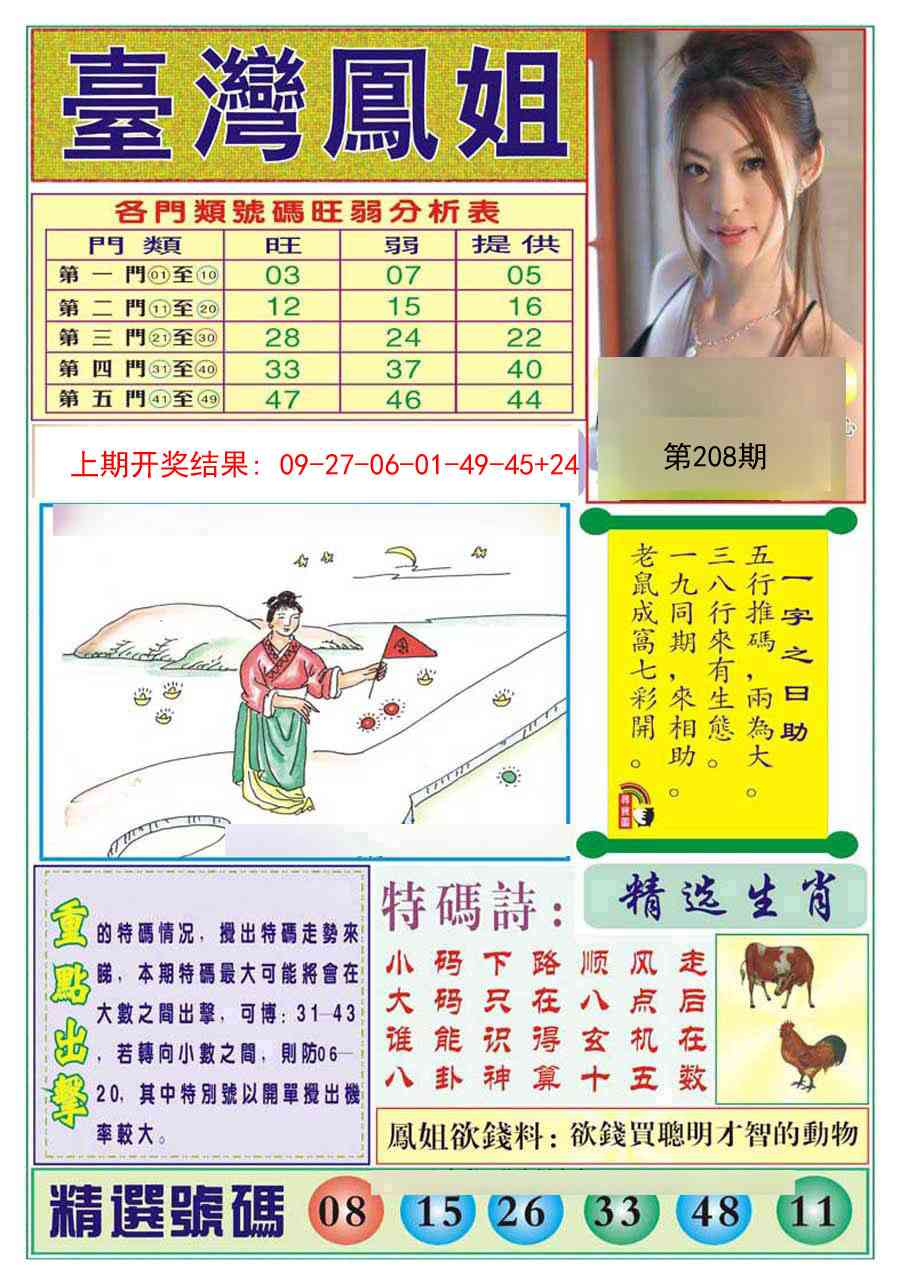 臺灣鳳姐
各門類號碼旺弱分析表
門類 旺 弱 提供
第一門01至10 03 07 05
第二門11至20 12 15 16
第三門21至30 28 24 22
第四門31至40 33 37 40
第五門41至49 47 46 44
上期开奖结果：09-27-06-01-49-45+24
第208期
一字之曰助
五行推碼，兩為大。
三八行來有生態。
一九同期，來相助。
老鼠成窩七彩開。
重點出擊
的特碼情况，攪出特碼走勢來
睇，本期特碼最大可能將會在
大數之間出擊，可博：31—43
，若轉向小數之間，則防06—
20，其中特別號以開單攪出機
率較大。
特碼詩：
小码下路顺风走
大码只在八点后
谁能识得玄机在
八卦神算十五数
精选生肖
鳳姐欲錢料：欲錢買聰明才智的動物
精選號碼 08 15 26 33 48 11